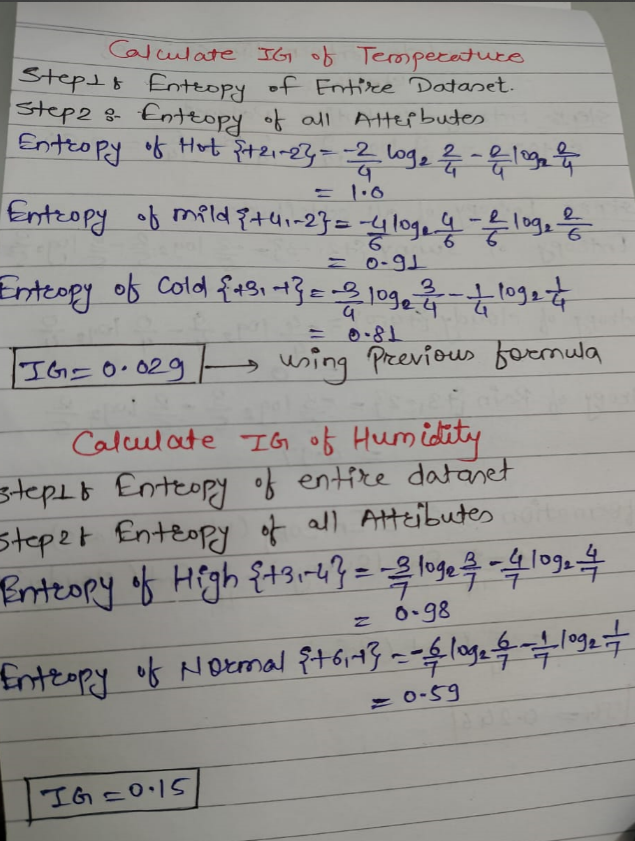 Calculate IG of Temperature
Step1: Entropy of Entire Dataset.
Step2 :- Entropy of all Attributes
Entropy of Hot {+2,-2} = -2/4 log₂ 2/4 - 2/4 log₂ 2/4
= 1.0
Entropy of mild {+4,-2} = -4/6 log₂ 4/6 - 2/6 log₂ 2/6
= 0.91
Entropy of Cold {+3,-1} = -3/4 log₂ 3/4 - 1/4 log₂ 1/4
= 0.81
IG = 0.029 → using Previous formula
Calculate IG of Humidity
Step1: Entropy of entire dataset
Step2: Entropy of all Attributes
Entropy of High {+3,-4} = -3/7 log₂ 3/7 - 4/7 log₂ 4/7
= 0.98
Entropy of Normal {+6,-1} = -6/7 log₂ 6/7 - 1/7 log₂ 1/7
= 0.59
IG = 0.15